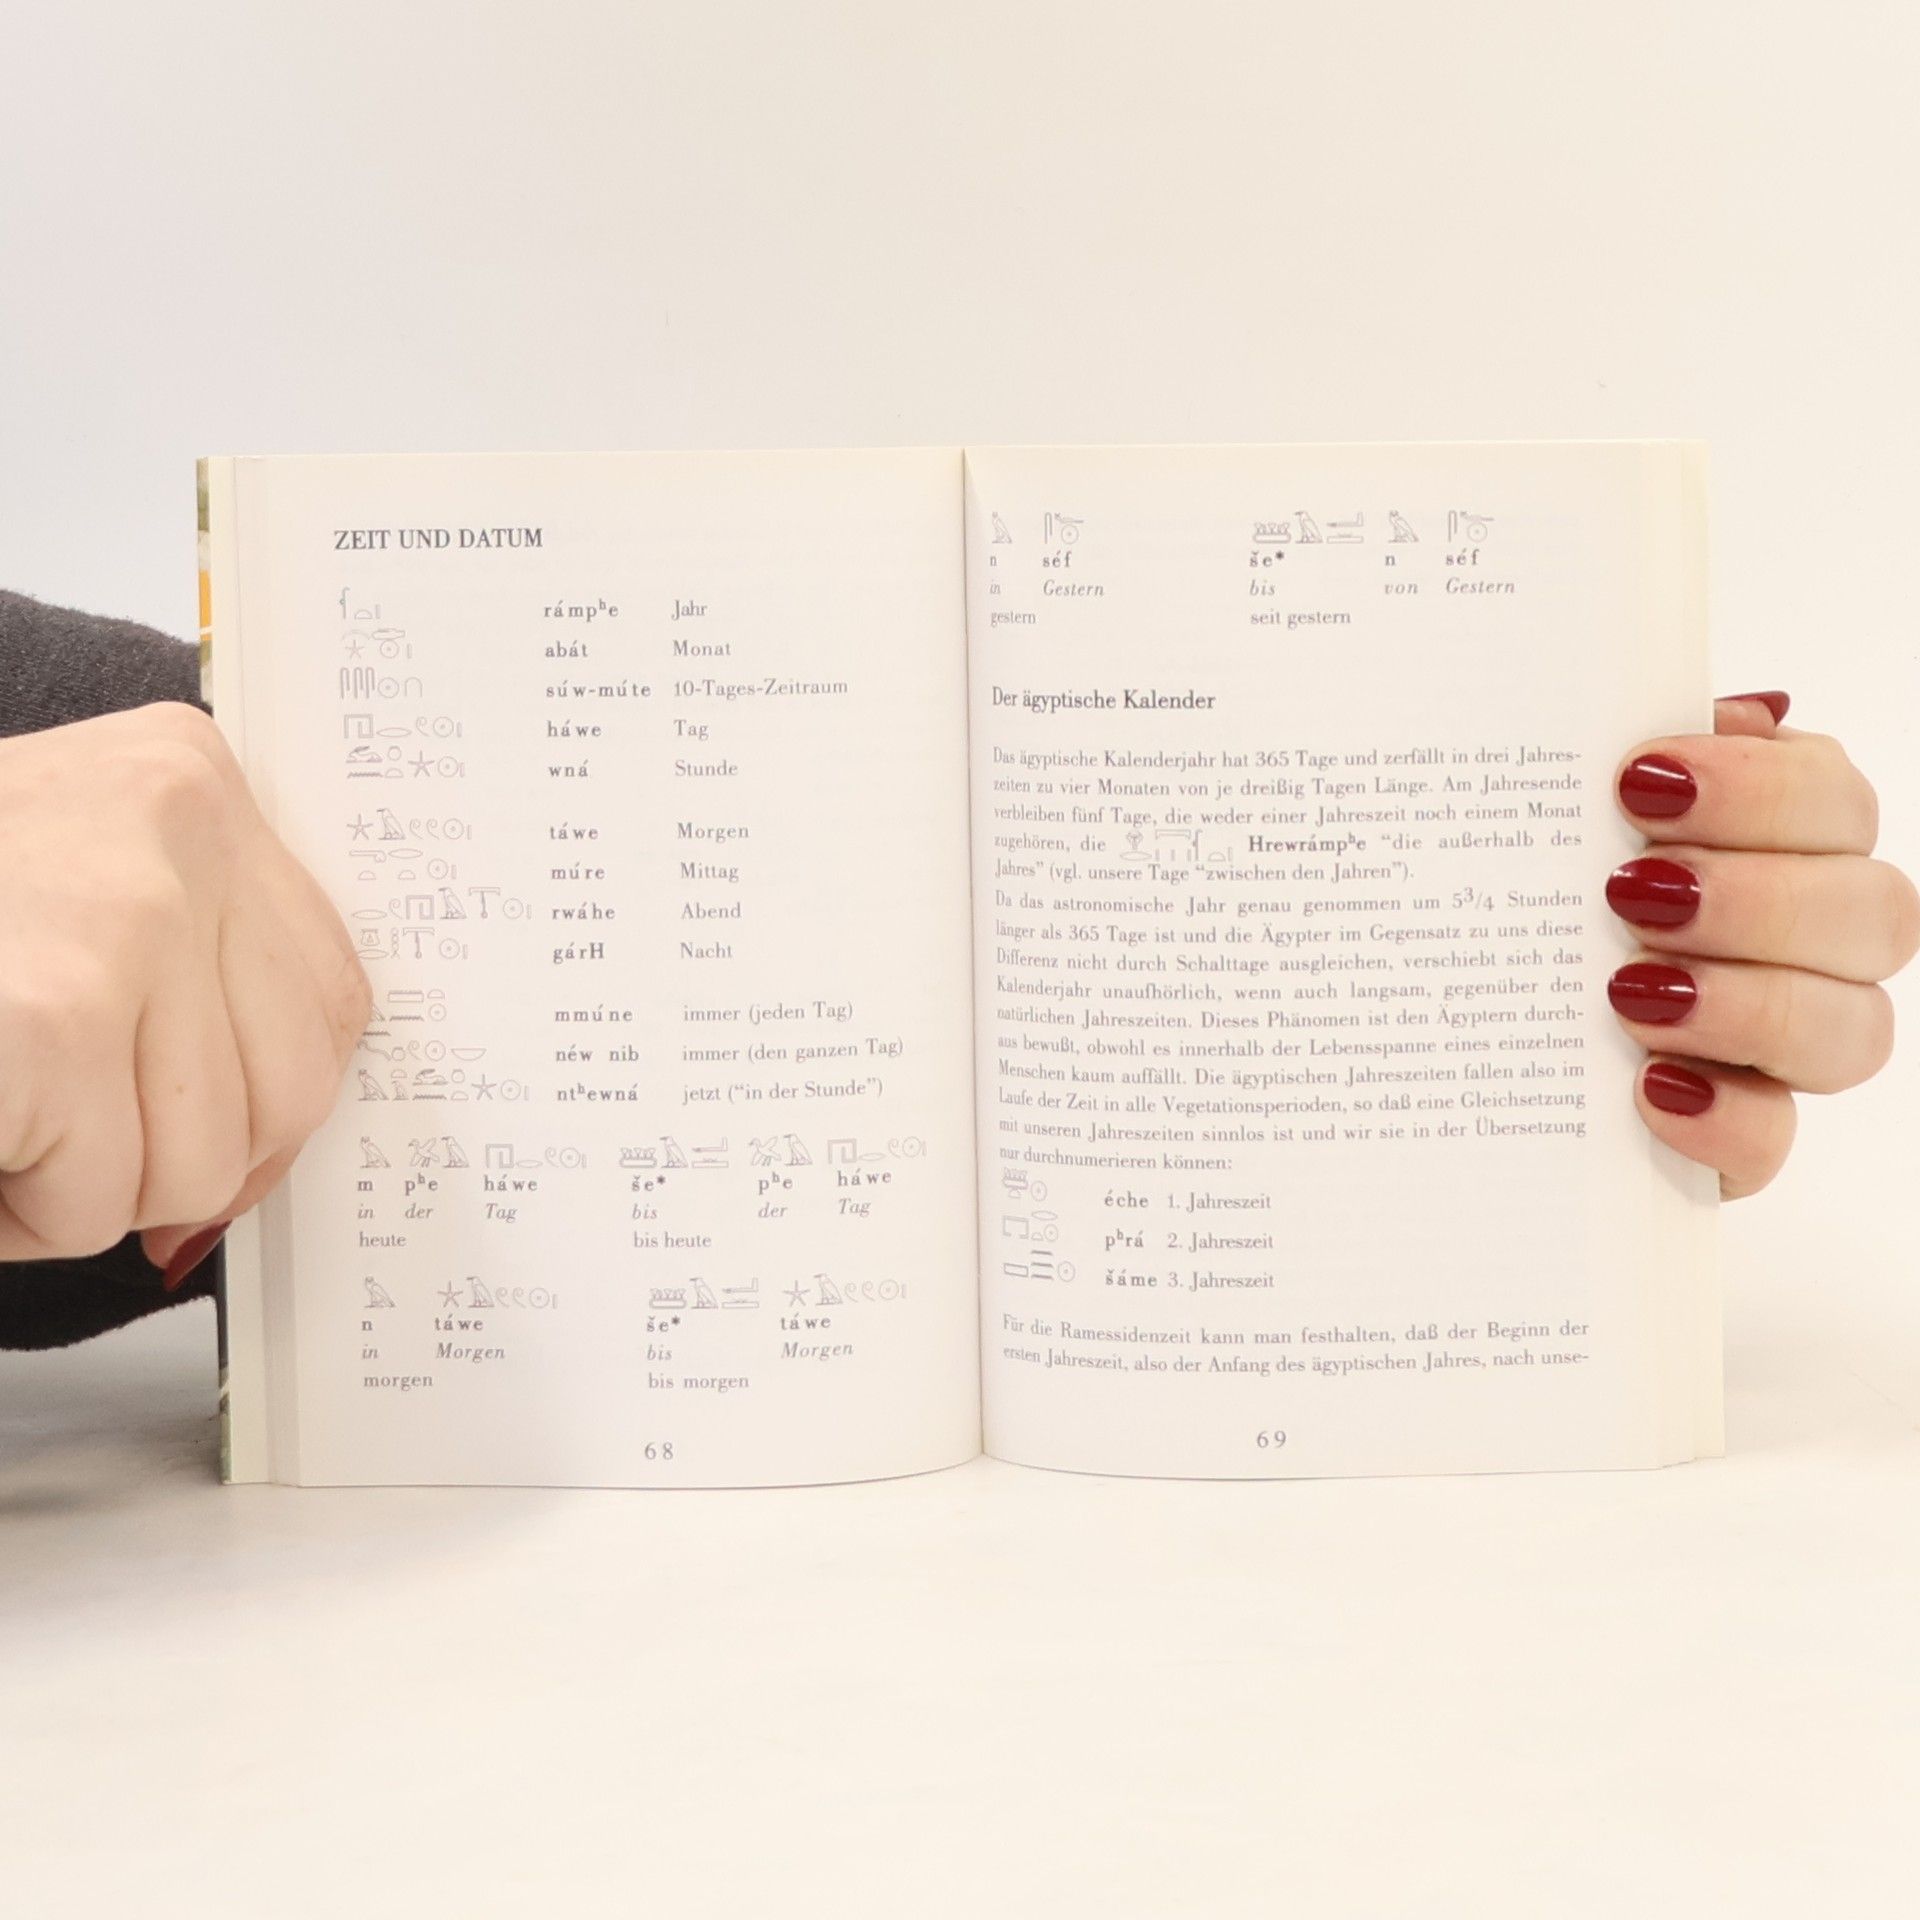 ZEIT UND DATUM
rámpʰe Jahr
abát Monat
súw-múte 10-Tages-Zeitraum
háwe Tag
wná Stunde
táwe Morgen
múre Mittag
rwáhe Abend
gárH Nacht
mmúne immer (jeden Tag)
néw nib immer (den ganzen Tag)
ntʰewná jetzt (“in der Stunde”)
m pʰe háwe še* pʰe háwe
in der Tag bis der Tag
heute bis heute
n táwe še* táwe
in Morgen bis Morgen
morgen bis morgen
68
n séf še* n séf
in Gestern bis von Gestern
gestern seit gestern
Der ägyptische Kalender
Das ägyptische Kalenderjahr hat 365 Tage und zerfällt in drei Jahres-
zeiten zu vier Monaten von je dreißig Tagen Länge. Am Jahresende
verbleiben fünf Tage, die weder einer Jahreszeit noch einem Monat
zugehören, die Hrewrámpʰe “die außerhalb des
Jahres” (vgl. unsere Tage “zwischen den Jahren”).
Da das astronomische Jahr genau genommen um 5³/4 Stunden
länger als 365 Tage ist und die Ägypter im Gegensatz zu uns diese
Differenz nicht durch Schalttage ausgleichen, verschiebt sich das
Kalenderjahr unaufhörlich, wenn auch langsam, gegenüber den
natürlichen Jahreszeiten. Dieses Phänomen ist den Ägyptern durch-
aus bewußt, obwohl es innerhalb der Lebensspanne eines einzelnen
Menschen kaum auffällt. Die ägyptischen Jahreszeiten fallen also im
Laufe der Zeit in alle Vegetationsperioden, so daß eine Gleichsetzung
mit unseren Jahreszeiten sinnlos ist und wir sie in der Übersetzung
nur durchnumerieren können:
éche 1. Jahreszeit
pʰrá 2. Jahreszeit
šáme 3. Jahreszeit
Für die Ramessidenzeit kann man festhalten, daß der Beginn der
ersten Jahreszeit, also der Anfang des ägyptischen Jahres, nach unse-
69